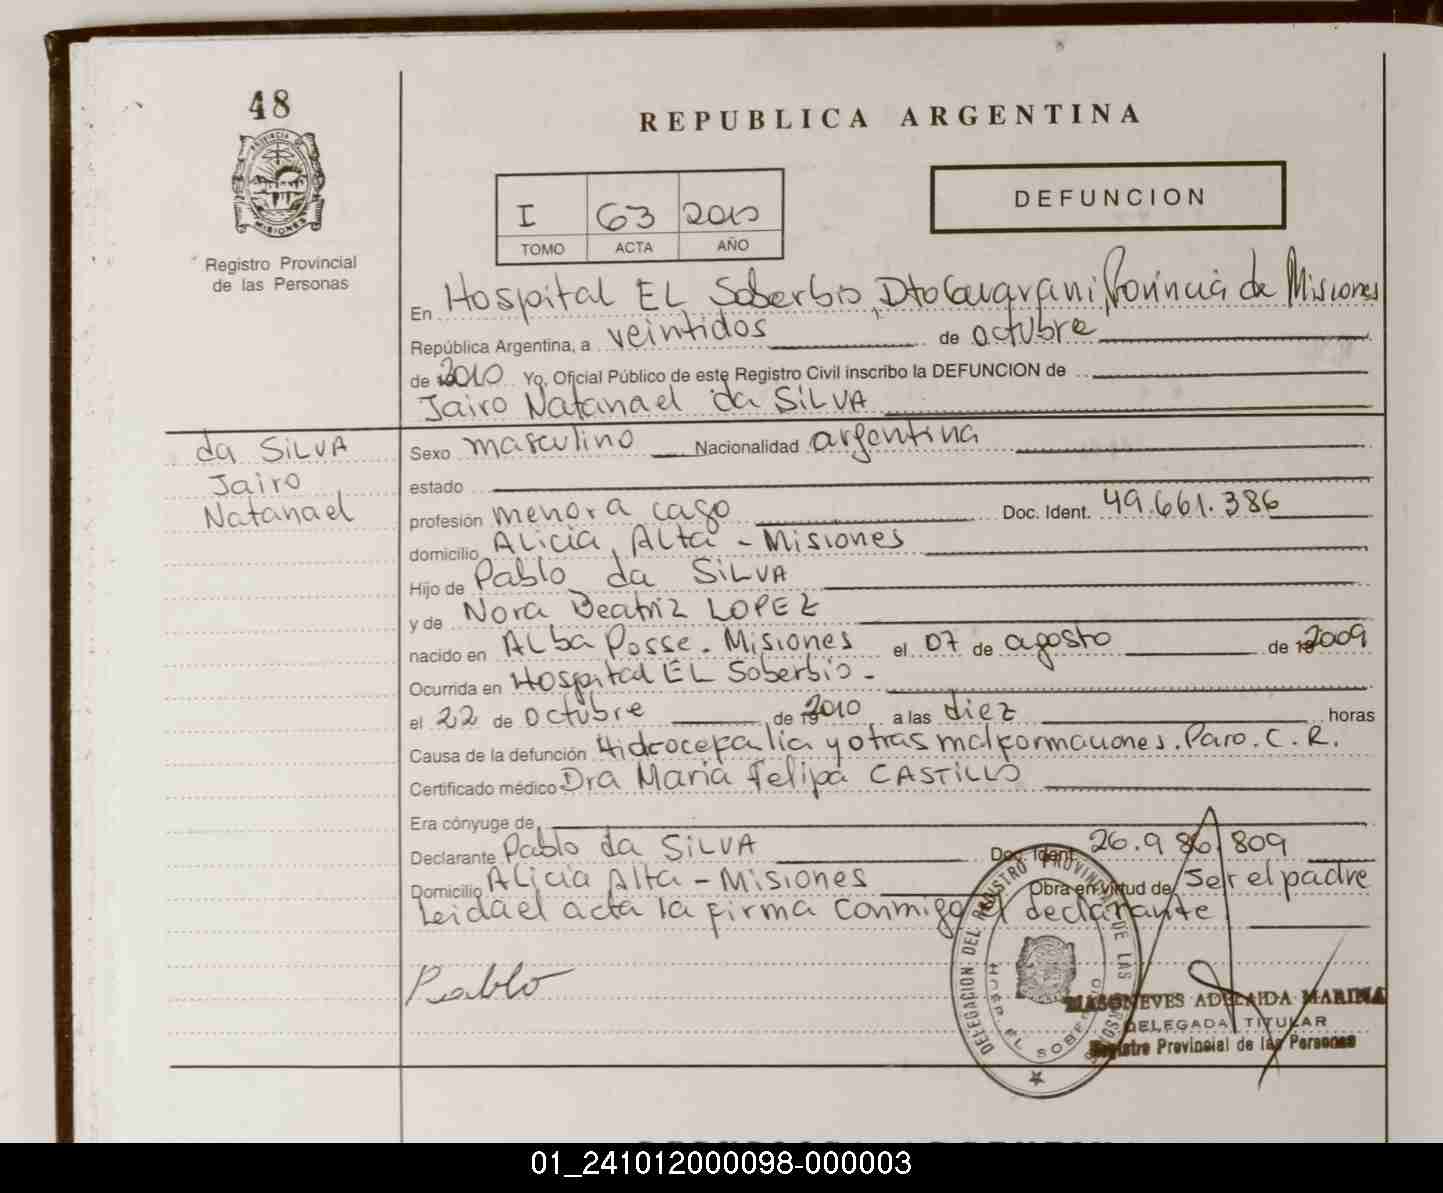 48
REPUBLICA ARGENTINA
PROVINCIA
MISIONES
Registro Provincial
de las Personas
I 63 2010
TOMO ACTA AÑO
DEFUNCION
En Hospital EL Soberbio, Dto Guarani, Provincia de Misiones
República Argentina, a veintidos de octubre
de 2010 Yo, Oficial Público de este Registro Civil inscribo la DEFUNCION de
Jairo Natanael da SILVA
da SILVA
Jairo
Natanael
Sexo masculino Nacionalidad argentina
estado
profesión menor a cago Doc. Ident. 49.661.386
domicilio Alicia, Alta - Misiones
Hijo de Pablo da SILVA
y de Nora Beatriz LOPEZ
nacido en ALba Posse - Misiones el 07 de agosto de 2009
Ocurrida en Hospital EL Soberbio -
el 22 de octubre de 2010, a las diez horas
Causa de la defunción Hidrocefalia y otras malformaciones. Paro. C. R.
Certificado médico Dra Maria Felipa CASTILLO
Era cónyuge de
Declarante Pablo da SILVA Doc. Ident. 26.986.809
Domicilio Alicia Alta - Misiones Obra en virtud de Ser el padre
Leida el acta la firma conmigo el declarante
Pablo
DELEGACION DEL REGISTRO PROVINCIAL DE LAS PERSONAS
EL SOBERBIO
MASONEVES ADELAIDA MARINA
DELEGADA TITULAR
Registro Provincial de las Personas
01_241012000098-000003